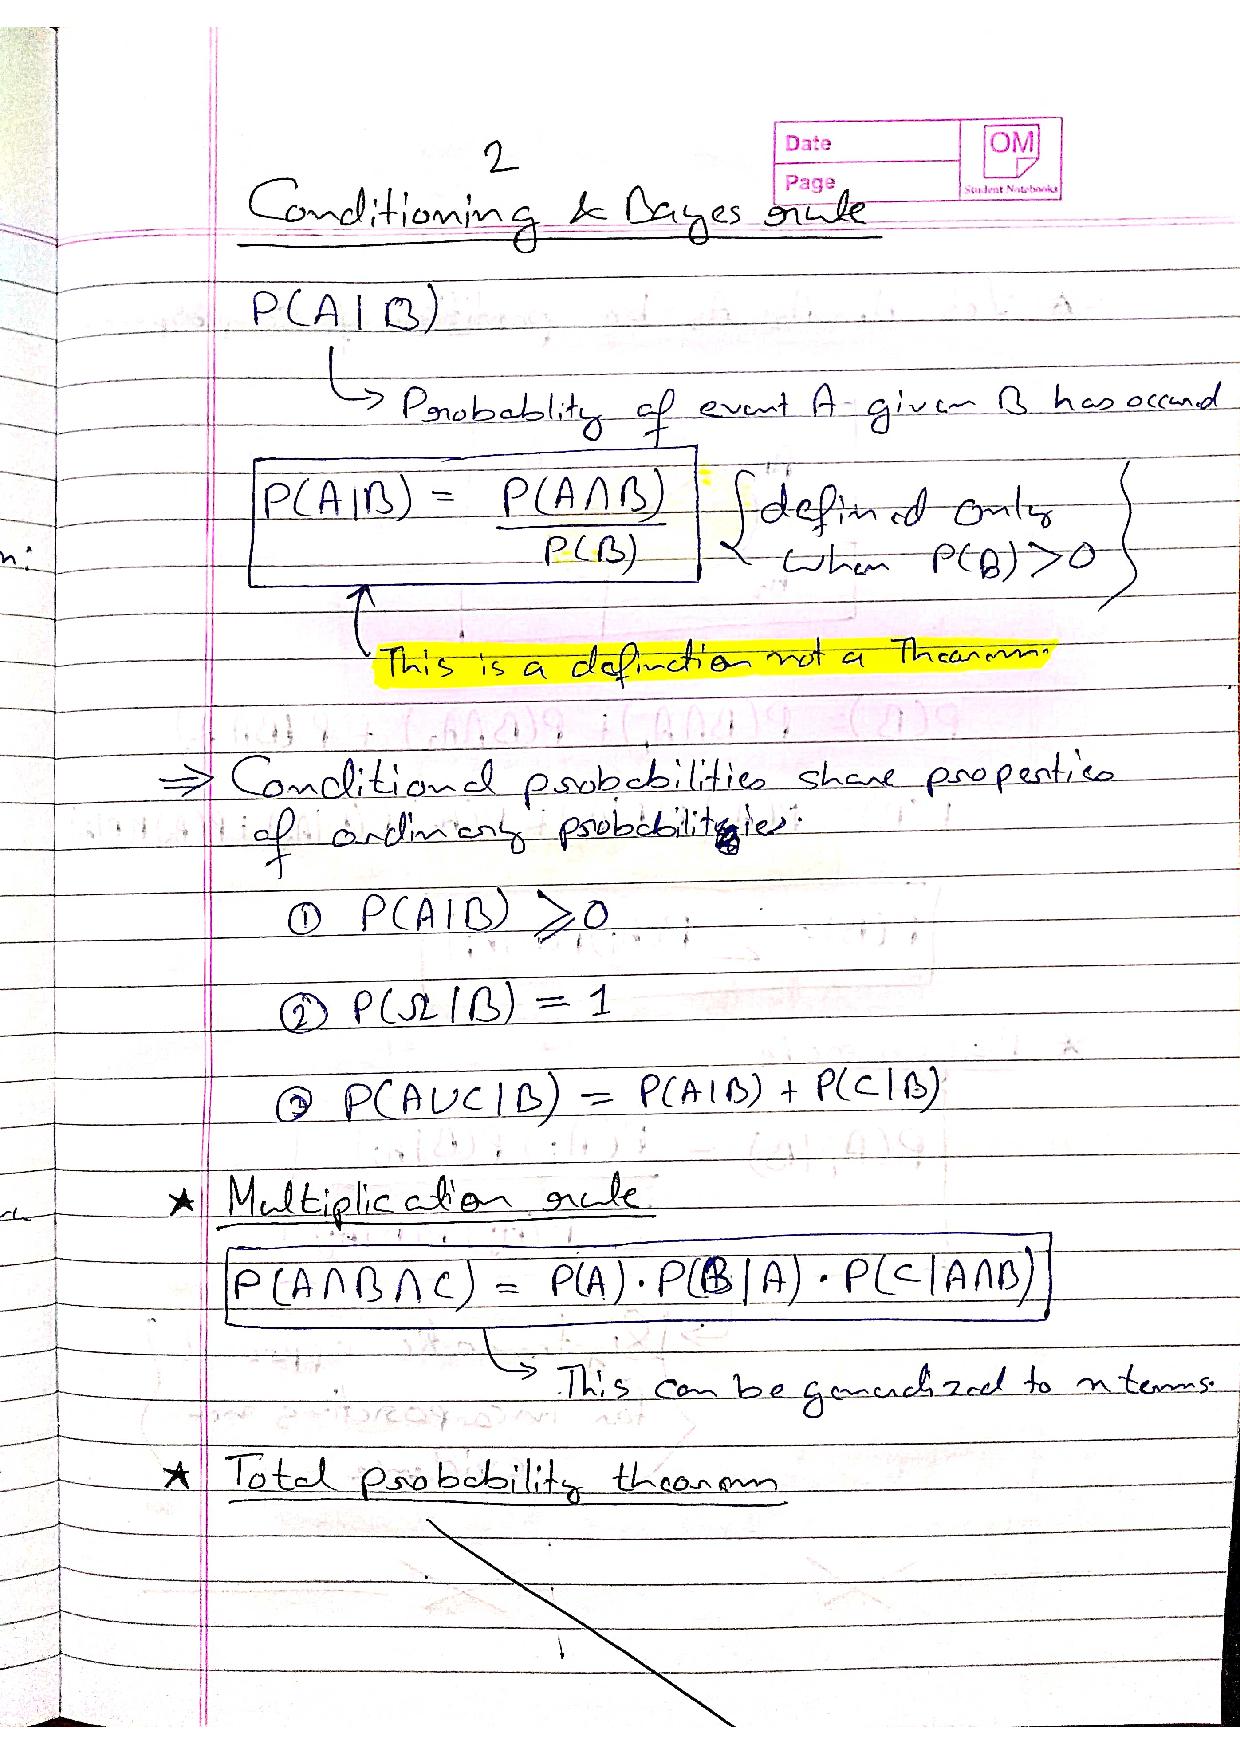 2
Date
Page
OM
Student Notebooks
Conditioning & Bayes rule
P(A|B)
↳ Probablity of event A given B has occured
P(A|B) = P(A∩B) / P(B) { defined only
when P(B)>0 }
n:
This is a definction not a Thearom.
⇒ Conditional probabilities share properties
of ordinary probabilities.
① P(A|B) ⩾ 0
② P(Ω|B) = 1
③ P(A∪C|B) = P(A|B) + P(C|B)
★ Multiplication rule
P(A∩B∩C) = P(A)·P(B|A)·P(C|A∩B)
↳ This can be generalized to n terms.
★ Total probability thearom